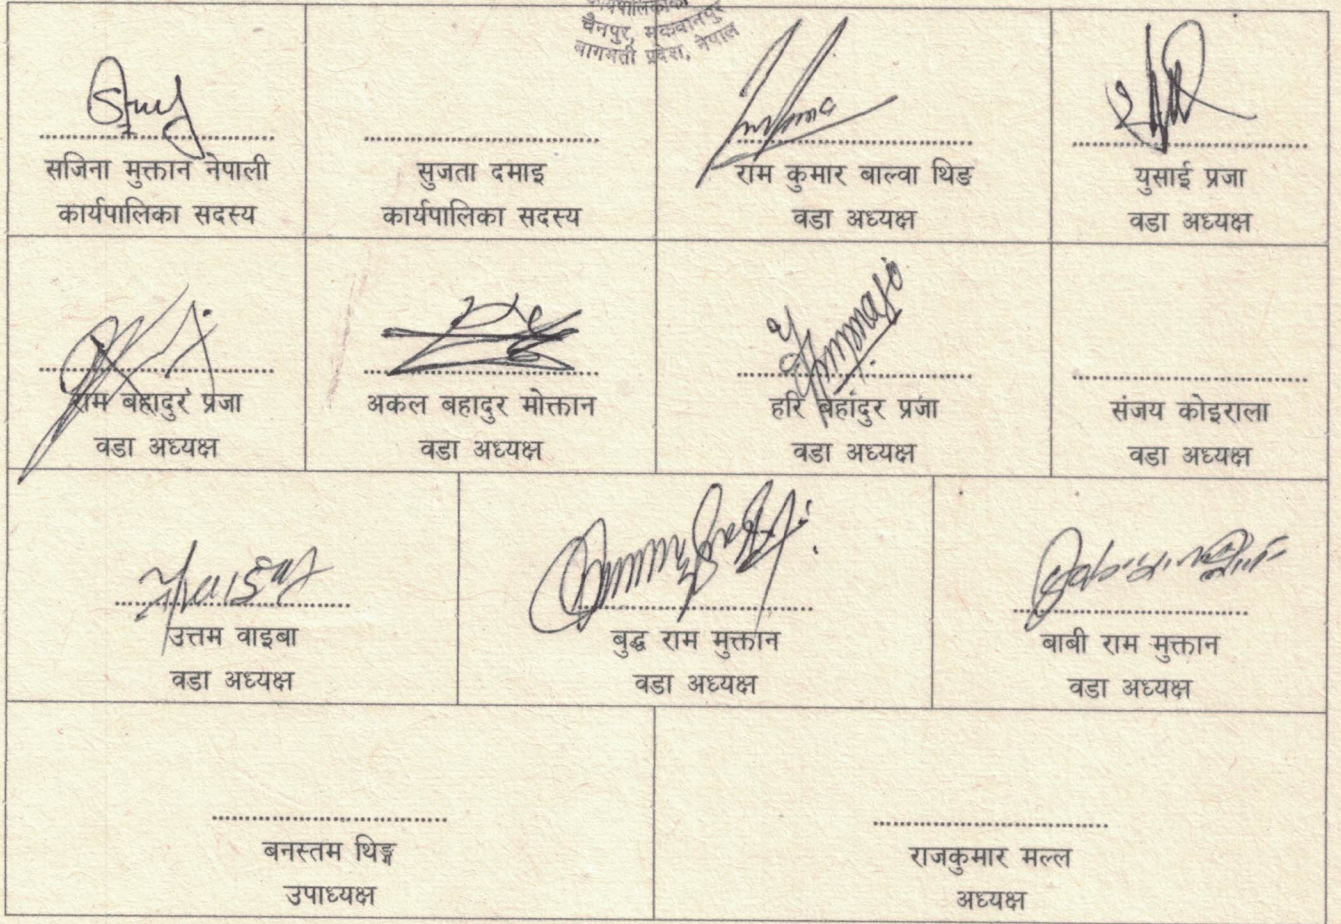 कार्यपालिकाको
चैनपुर, मकवानपुर
बागमती प्रदेश, नेपाल
सजिना मुक्तान नेपाली
कार्यपालिका सदस्य
सुजता दमाइ
कार्यपालिका सदस्य
राम कुमार बाल्वा थिङ
वडा अध्यक्ष
युसाई प्रजा
वडा अध्यक्ष
राम बहादुर प्रजा
वडा अध्यक्ष
अकल बहादुर मोक्तान
वडा अध्यक्ष
हरि बहादुर प्रजा
वडा अध्यक्ष
संजय कोइराला
वडा अध्यक्ष
उत्तम वाइबा
वडा अध्यक्ष
बुद्ध राम मुक्तान
वडा अध्यक्ष
बाबी राम मुक्तान
वडा अध्यक्ष
बनस्तम थिङ्ग
उपाध्यक्ष
राजकुमार मल्ल
अध्यक्ष